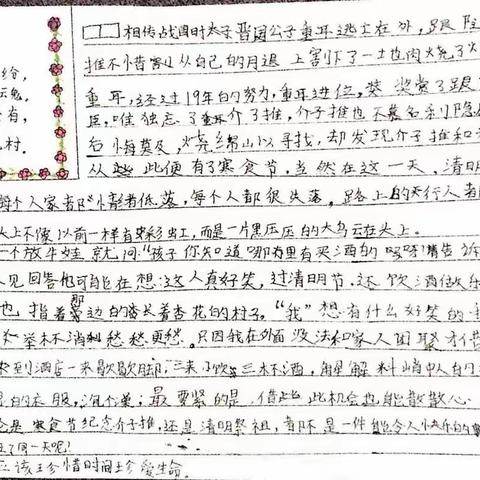 给,
魂。
有,
村。
相传战国时太子晋国公子重耳逃亡在外,跟随
推不惜割从自己的月退上割下了一土也肉烧了
重耳,经过19年的努力,重耳进位,装奖赏了跟
臣,唯独忘了重耳介了推,介子推也不慕名利隐
后悔莫及,烧绵山以寻找,却发现介子推和
从此便有了寒食节,当然在这一天,清明
每个人家都情绪低落,每个人都很失落,路上的行人
头上不像以前一样有彩虹,而是一片黑压压的大乌云在头上。
一个放牛娃就问:"孩子你知道哪里有买酒的
见回答他可能在想:这人真好笑,过清明节,还饮酒做乐
也指着那边的长着杏花的村子。"我"想有什么好笑的
举杯消愁愁更愁。只因我在外面没法和家人团聚才借
来到酒店一来歇歇脚,三来了饮三杯酒,
的衣服,最要紧的是,借此机会也能散散心.
是寒食节纪念介子推,还是清明祭祖,都不是一件能令人快乐的
该珍惜时间珍爱生命.